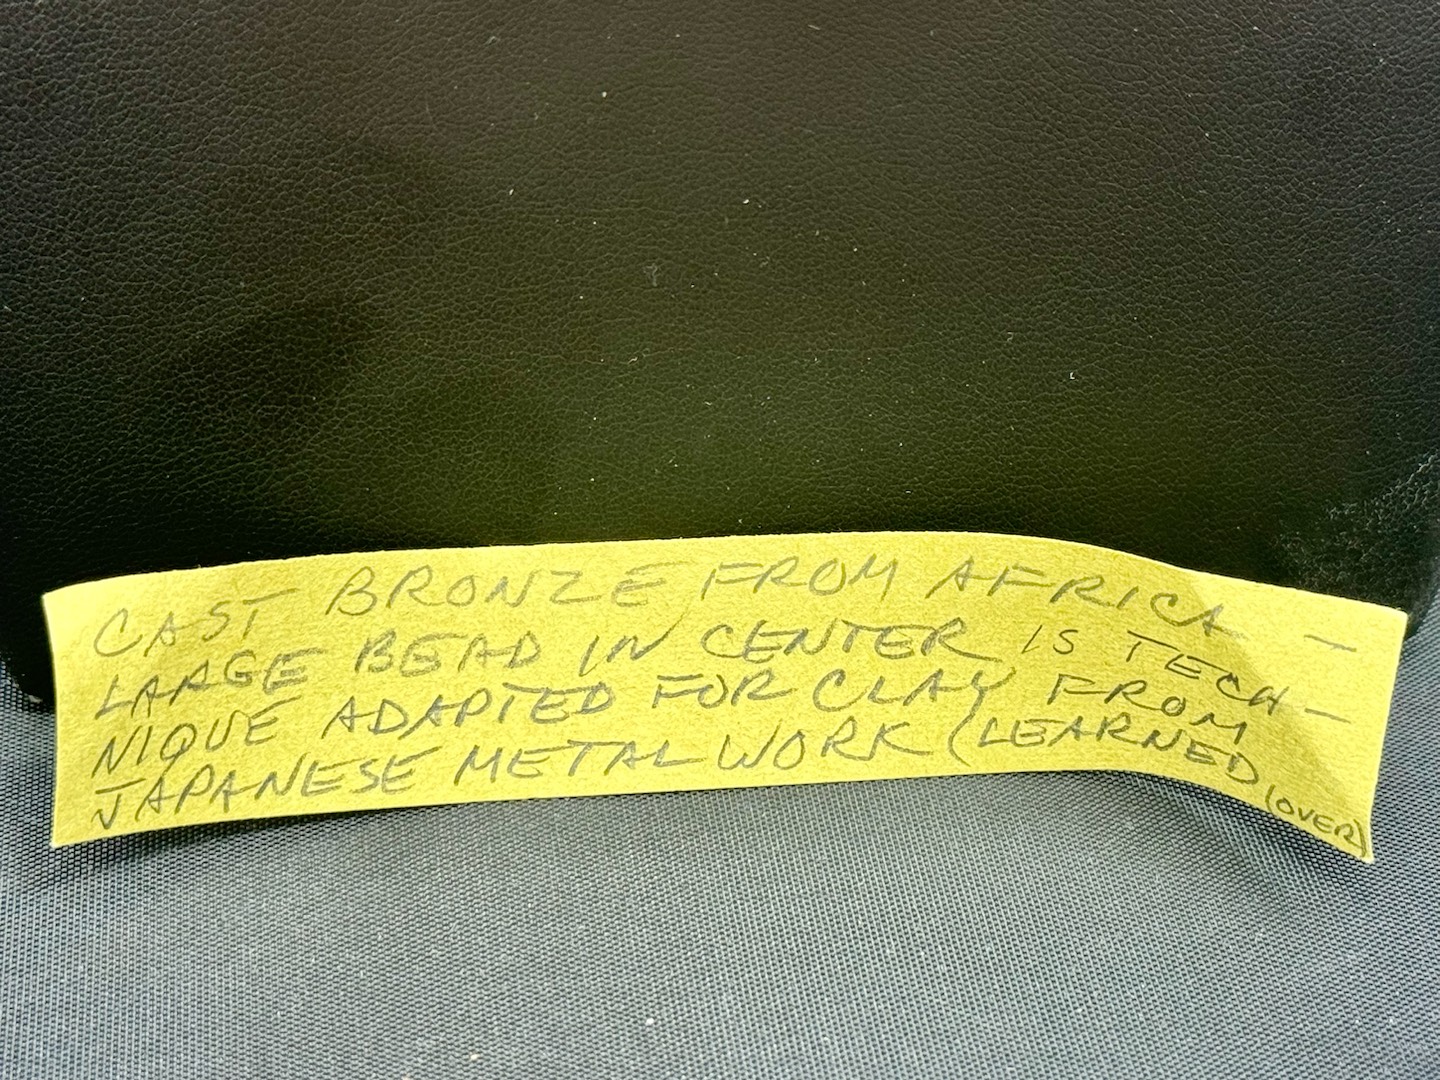 CAST BRONZE FROM AFRICA –
LARGE BEAD IN CENTER IS TECH–
NIQUE ADAPTED FOR CLAY FROM
JAPANESE METALWORK (LEARNED
(OVER)